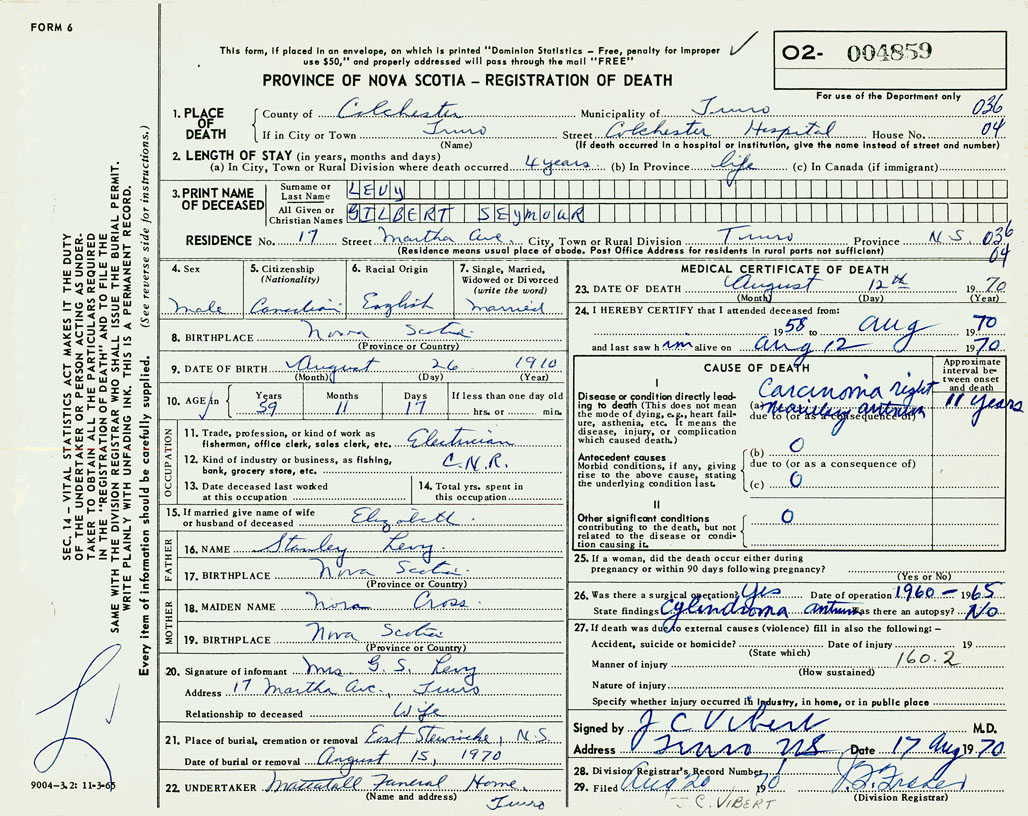 FORM 6
This form, if placed in an envelope, on which is printed "Dominion Statistics – Free, penalty for improper
use $50," and properly addressed will pass through the mail "FREE"
O2- 004859
For use of the Department only
PROVINCE OF NOVA SCOTIA – REGISTRATION OF DEATH
1. PLACE OF DEATH County of Colchester Municipality of Truro 036
If in City or Town Truro Street Colchester Hospital House No. 04
(Name) (If death occurred in a hospital or institution, give the name instead of street and number)
2. LENGTH OF STAY (in years, months and days)
(a) In City, Town or Rural Division where death occurred 4 years (b) In Province life (c) In Canada (if immigrant)
3. PRINT NAME OF DECEASED Surname or Last Name LEVY
All Given or Christian Names GILBERT SEYMOUR
RESIDENCE No. 17 Street Martha Ave. City, Town or Rural Division Truro Province N.S. 036
(Residence means usual place of abode. Post Office Address for residents in rural parts not sufficient) 04
4. Sex Male
5. Citizenship (Nationality) Canadian
6. Racial Origin English
7. Single, Married, Widowed or Divorced (write the word) Married
8. BIRTHPLACE Nova Scotia
(Province or Country)
9. DATE OF BIRTH August 26 1910
(Month) (Day) (Year)
10. AGE in Years 59 Months 11 Days 17 If less than one day old
hrs. or min.
OCCUPATION
11. Trade, profession, or kind of work as
fisherman, office clerk, sales clerk, etc. Electrician
12. Kind of industry or business, as fishing,
bank, grocery store, etc. C.N.R.
13. Date deceased last worked
at this occupation
14. Total yrs. spent in
this occupation
15. If married give name of wife
or husband of deceased Elizabeth
FATHER
16. NAME Stanley Levy
17. BIRTHPLACE Nova Scotia
(Province or Country)
MOTHER
18. MAIDEN NAME Nora Cross
19. BIRTHPLACE Nova Scotia
(Province or Country)
20. Signature of informant Mrs. G. S. Levy
Address 17 Martha Ave., Truro
Relationship to deceased Wife
21. Place of burial, cremation or removal East Stewiacke, N.S.
Date of burial or removal August 15, 1970
22. UNDERTAKER Mattatall Funeral Home,
(Name and address) Truro
MEDICAL CERTIFICATE OF DEATH
23. DATE OF DEATH August 12th 1970
(Month) (Day) (Year)
24. I HEREBY CERTIFY that I attended deceased from:
1958 to Aug 1970
and last saw him alive on Aug 12 1970
CAUSE OF DEATH
Approximate interval between onset and death
I
Disease or condition directly leading to death (This does not mean the mode of dying, e.g., heart failure, asthenia, etc. It means the disease, injury, or complication which caused death.)
(a) Carcinoma right maxillary antrum 11 years
due to (or as a consequence of)
Antecedent causes
Morbid conditions, if any, giving rise to the above cause, stating the underlying condition last.
(b) 0
due to (or as a consequence of)
(c) 0
II
Other significant conditions
contributing to the death, but not related to the disease or condition causing it. 0
25. If a woman, did the death occur either during
pregnancy or within 90 days following pregnancy?
(Yes or No)
26. Was there a surgical operation? Yes Date of operation 1960 – 1965
State findings Cylindroma antrum Was there an autopsy? No
27. If death was due to external causes (violence) fill in also the following: –
Accident, suicide or homicide? Date of injury 19
(State which)
Manner of injury 160.2
(How sustained)
Nature of injury
Specify whether injury occurred in industry, in home, or in public place
Signed by J C Vibert M.D.
Address Truro NS Date 17 Aug 1970
28. Division Registrar's Record Number
29. Filed Aug 20 1970
(Division Registrar)
J. C. VIBERT
SEC. 14 – VITAL STATISTICS ACT MAKES IT THE DUTY
OF THE UNDERTAKER OR PERSON ACTING AS UNDER-
TAKER TO OBTAIN ALL THE PARTICULARS REQUIRED
IN THE "REGISTRATION OF DEATH" AND TO FILE THE
SAME WITH THE DIVISION REGISTRAR WHO SHALL ISSUE THE BURIAL PERMIT.
WRITE PLAINLY WITH UNFADING INK. THIS IS A PERMANENT RECORD.
Every item of information should be carefully supplied. (See reverse side for instructions.)
9004–3.2: 11-3-65